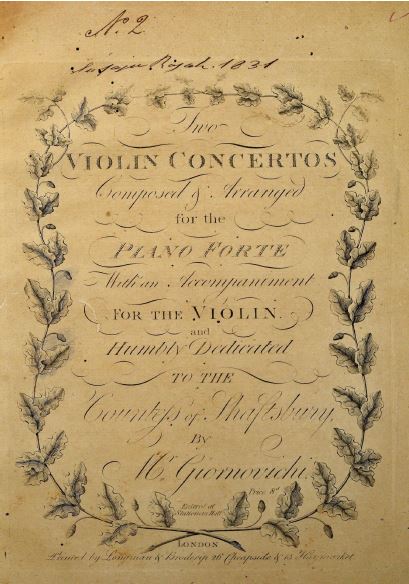 No. 2
1831
Two
VIOLIN CONCERTOS
Composed & Arranged
for the
PIANO FORTE
With an Accompaniment
FOR THE VIOLIN.
and
Humbly Dedicated
TO THE
Countess of Shaftsbury,
BY
Mr. Giornovichi.
Price 8s
Enter'd at
Stationers Hall
LONDON
Printed by Longman & Broderip 26 Cheapside & 13 Haymarket